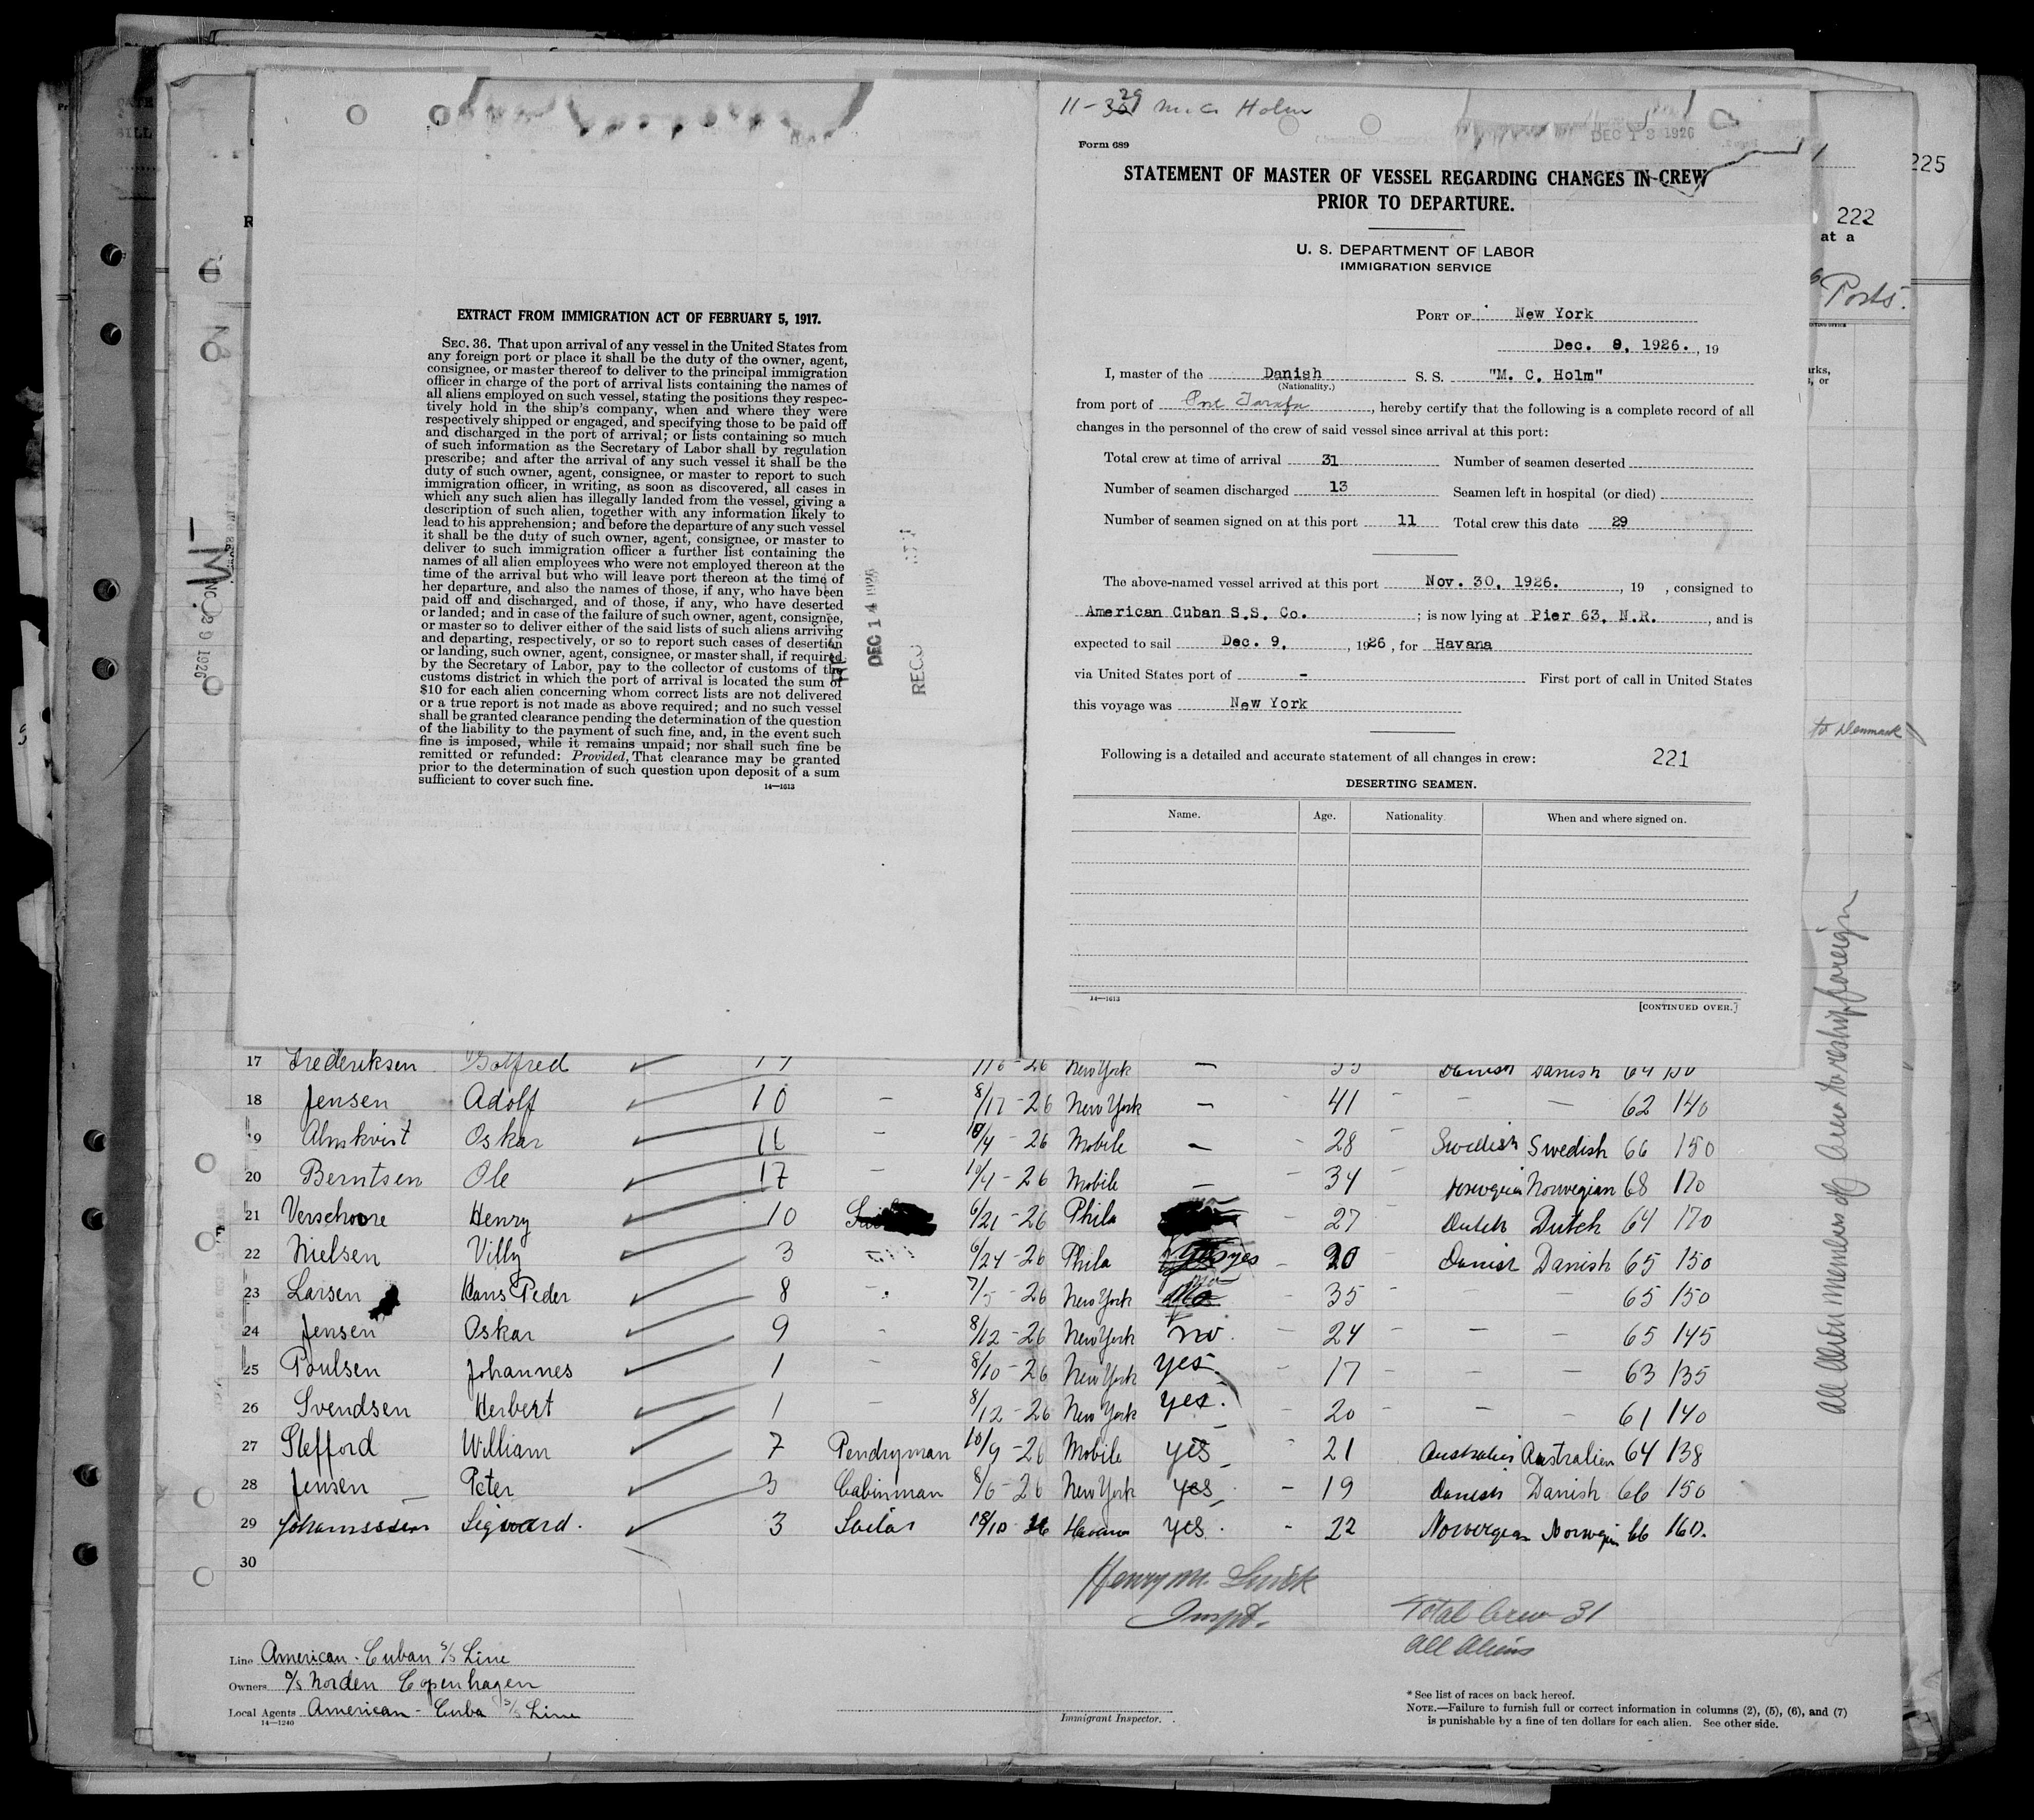 11-29 M.C. Holm
DEC 13 1926
Form 689
STATEMENT OF MASTER OF VESSEL REGARDING CHANGES IN CREW
PRIOR TO DEPARTURE.
U. S. DEPARTMENT OF LABOR
IMMIGRATION SERVICE
PORT OF New York
Dec. 9, 1926. , 19
I, master of the Danish S. S. "M. C. Holm"
(Nationality.)
from port of Port Tarafa , hereby certify that the following is a complete record of all
changes in the personnel of the crew of said vessel since arrival at this port:
Total crew at time of arrival 31 Number of seamen deserted
Number of seamen discharged 13 Seamen left in hospital (or died)
Number of seamen signed on at this port 11 Total crew this date 29
The above-named vessel arrived at this port Nov. 30, 1926. , 19 , consigned to
American Cuban S.S. Co. ; is now lying at Pier 63, N.R. , and is
expected to sail Dec. 9, , 1926 , for Havana
via United States port of - First port of call in United States
this voyage was New York
Following is a detailed and accurate statement of all changes in crew: 221
DESERTING SEAMEN.
Name. Age. Nationality When and where signed on.
14—1613 [CONTINUED OVER.]
EXTRACT FROM IMMIGRATION ACT OF FEBRUARY 5, 1917.
SEC. 36. That upon arrival of any vessel in the United States from
any foreign port or place it shall be the duty of the owner, agent,
consignee, or master thereof to deliver to the principal immigration
officer in charge of the port of arrival lists containing the names of
all aliens employed on such vessel, stating the positions they respec-
tively hold in the ship's company, when and where they were
respectively shipped or engaged, and specifying those to be paid off
and discharged in the port of arrival; or lists containing so much
of such information as the Secretary of Labor shall by regulation
prescribe; and after the arrival of any such vessel it shall be the
duty of such owner, agent, consignee, or master to report to such
immigration officer, in writing, as soon as discovered, all cases in
which any such alien has illegally landed from the vessel, giving a
description of such alien, together with any information likely to
lead to his apprehension; and before the departure of any such vessel
it shall be the duty of such owner, agent, consignee, or master to
deliver to such immigration officer a further list containing the
names of all alien employees who were not employed thereon at the
time of the arrival but who will leave port thereon at the time of
her departure, and also the names of those, if any, who have been
paid off and discharged, and of those, if any, who have deserted
or landed; and in case of the failure of such owner, agent, consignee,
or master so to deliver either of the said lists of such aliens arriving
and departing, respectively, or so to report such cases of desertion
or landing, such owner, agent, consignee, or master shall, if required
by the Secretary of Labor, pay to the collector of customs of the
customs district in which the port of arrival is located the sum of
$10 for each alien concerning whom correct lists are not delivered
or a true report is not made as above required; and no such vessel
shall be granted clearance pending the determination of the question
of the liability to the payment of such fine, and, in the event such
fine is imposed, while it remains unpaid; nor shall such fine be
remitted or refunded: Provided, That clearance may be granted
prior to the determination of such question upon deposit of a sum
sufficient to cover such fine.
14—1613
DEC 14 1926
225
222
at a
Ports.
to Denmark
All Alien members of Crew to reship foreign
17 Frederiksen Gotfred 26 New York — Danish Danish 64 150
18 Jensen Adolf 10 — 8/17 - 26 New York — 41 — — — 62 140
19 Almkvist Oskar 11 — 10/4 - 26 Mobile — 28 — Swedish Swedish 66 150
20 Berntsen Ole 17 — 10/4 - 26 Mobile — 34 — Norwegian Norwegian 68 170
21 Verschoore Henry 10 6/21 - 26 Phila no 27 — Dutch Dutch 64 170
22 Nielsen Villy 3 6/24 - 26 Phila yes — 20 — Danish Danish 65 150
23 Larsen Hans Peder 8 — 7/5 - 26 New York no — 35 — — — 65 150
24 Jensen Oskar 9 — 8/12 - 26 New York no. — 24 — — — 65 145
25 Poulsen Johannes 1 — 8/10 - 26 New York yes — 17 — — — 63 135
26 Svendsen Herbert 1 — 8/12 - 26 New York yes. — 20 — — — 61 140
27 Slefford William 7 Pendryman 10/9 - 26 Mobile yes — 21 Australian Australian 64 138
28 Jensen Peter 3 Cabinman 8/6 - 26 New York yes — 19 Danish Danish 66 150
29 Johannssen Sigward. 3 Sailor 26 Havana yes. - 22 Norwegian Norwegian 66 160.
30
Henry M.
Inspt.
Total Crew 31
All Aliens
Line American - Cuban S/S Line
Owners D/S Norden Copenhagen
Local Agents American - Cuba S/S Line
14—1240
Immigrant Inspector.
* See list of races on back hereof.
NOTE.—Failure to furnish full or correct information in columns (2), (5), (6), and (7)
is punishable by a fine of ten dollars for each alien. See other side.